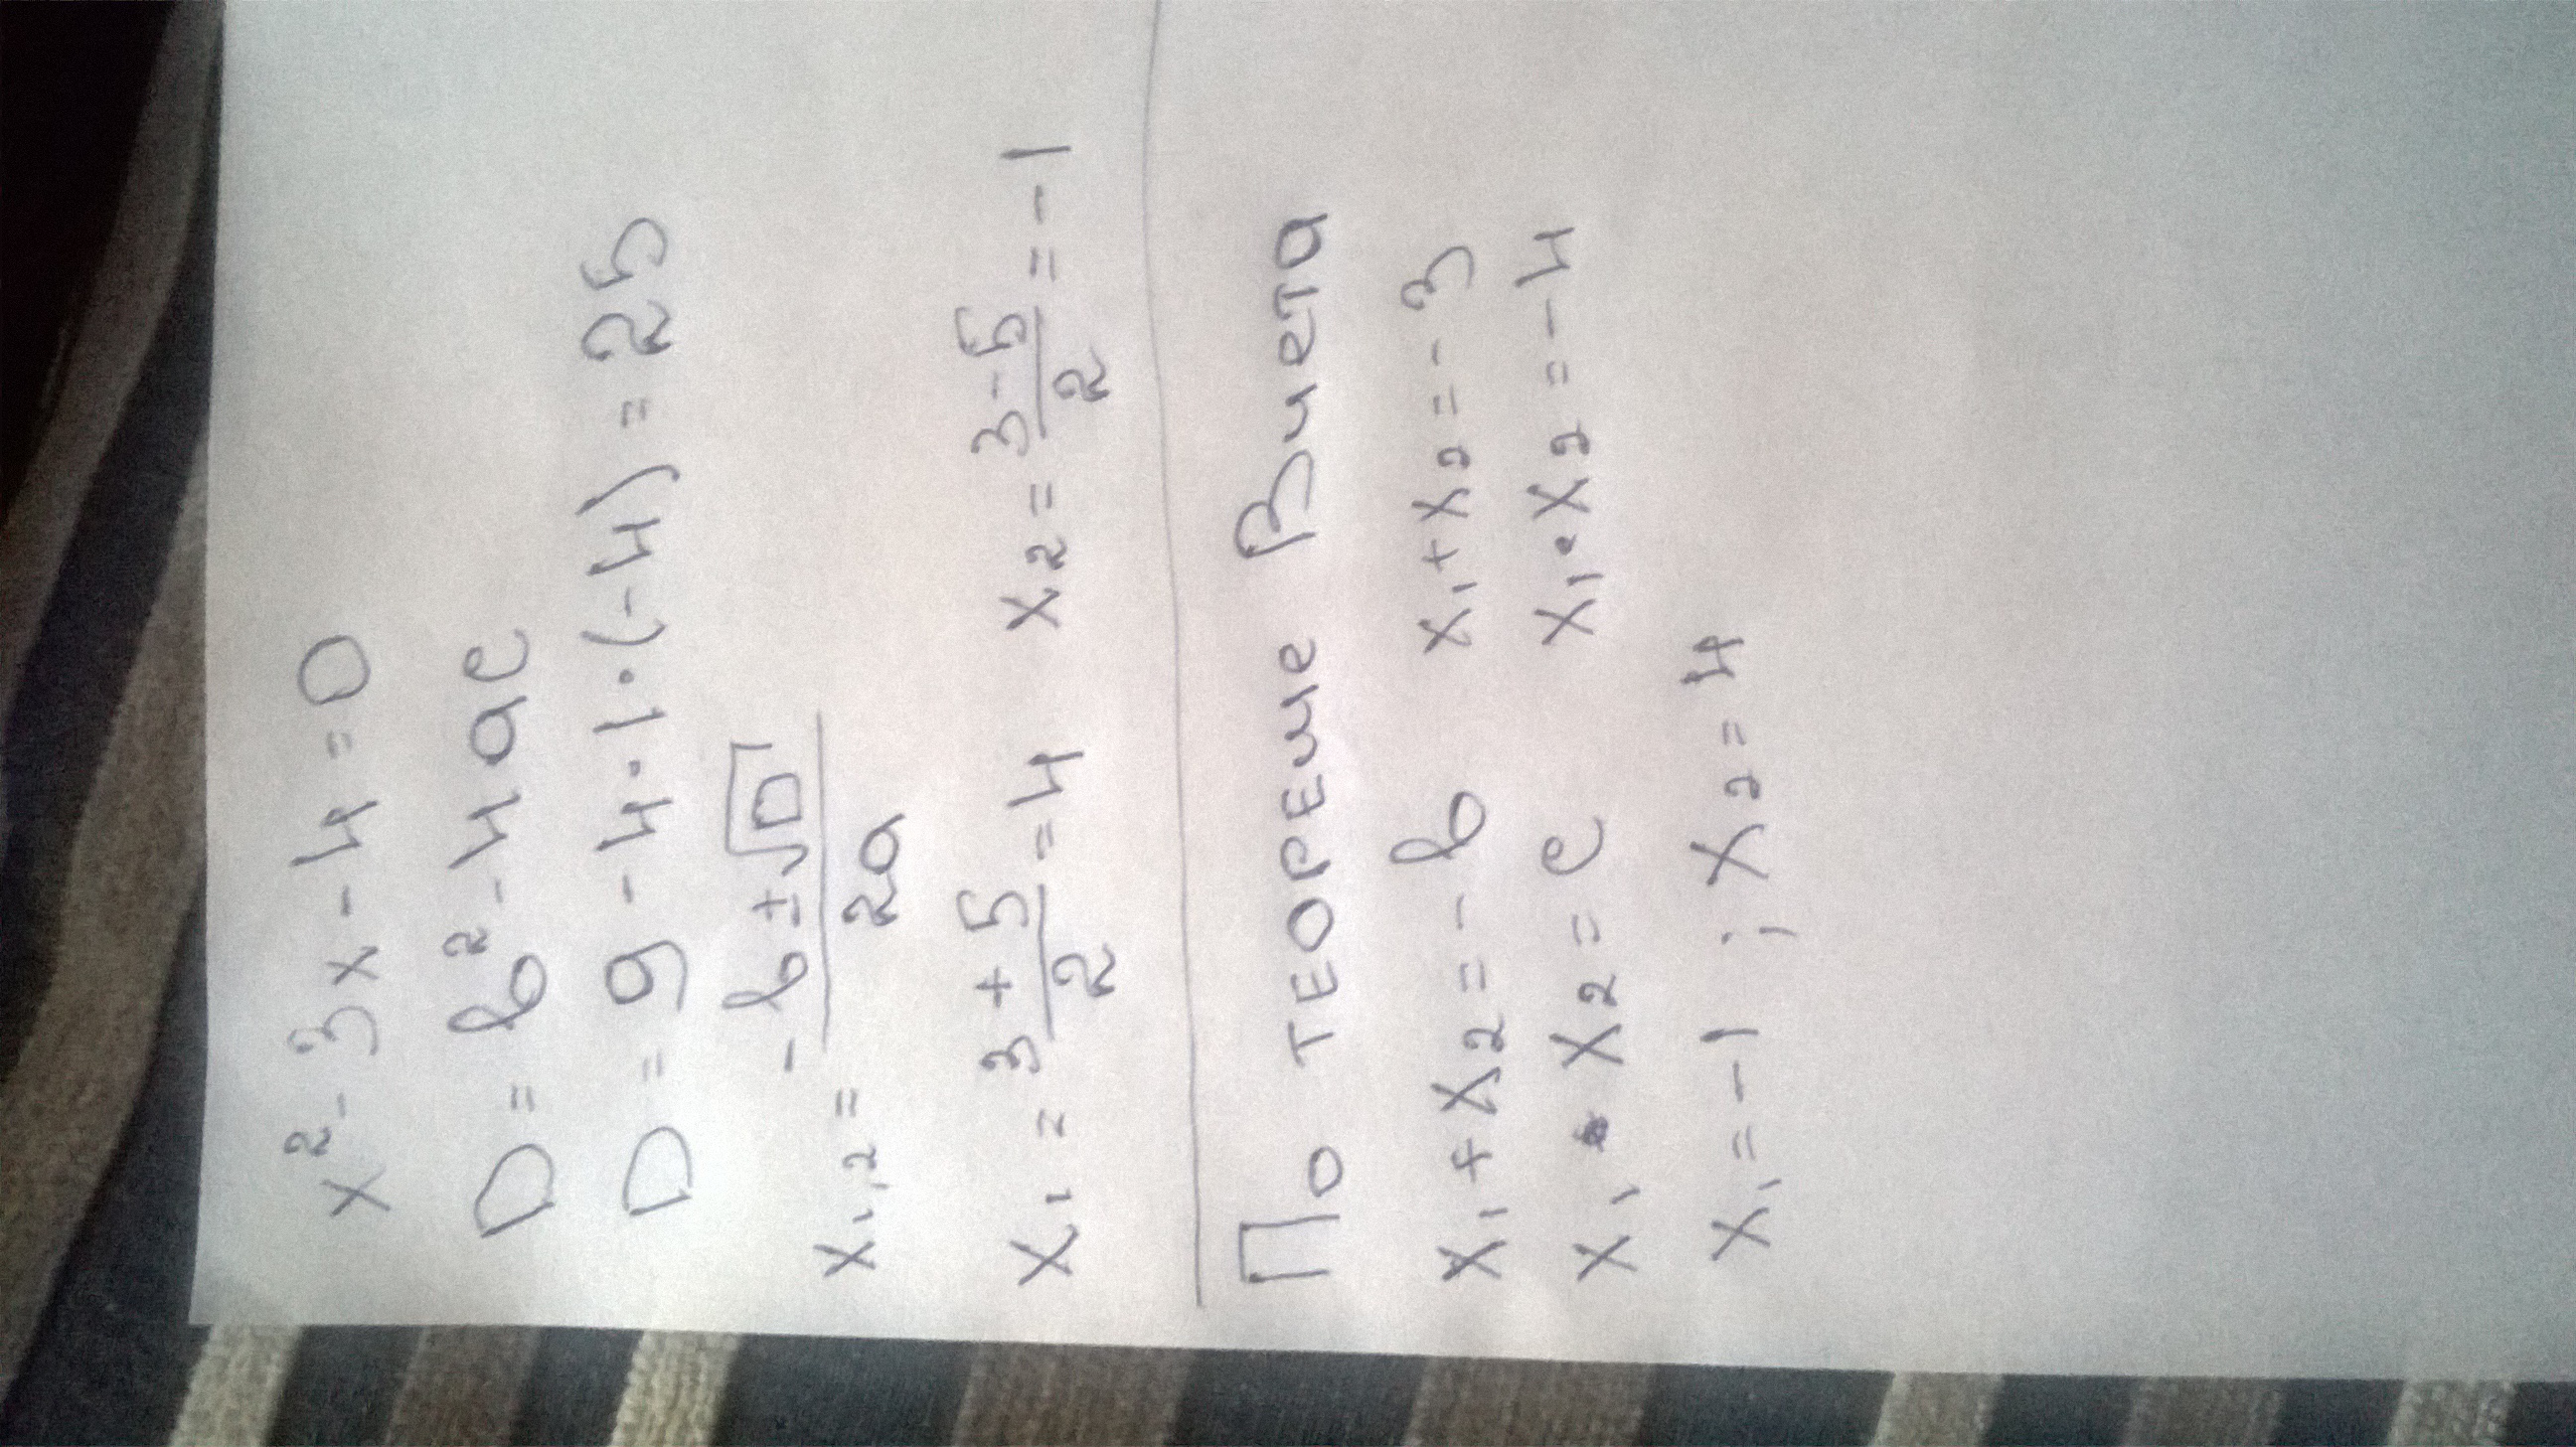 x² - 3x - 4 = 0
D = b² - 4ac
D = 9 - 4·1·(-4) = 25
x₁,₂ = (-b ± √D) / 2a
x₁ = (3 + 5) / 2 = 4   x₂ = (3 - 5) / 2 = -1
По теореме Виета
x₁ + x₂ = -b   x₁ + x₂ = -3
x₁ · x₂ = c   x₁ · x₂ = -4
x₁ = -1 ; x₂ = 4